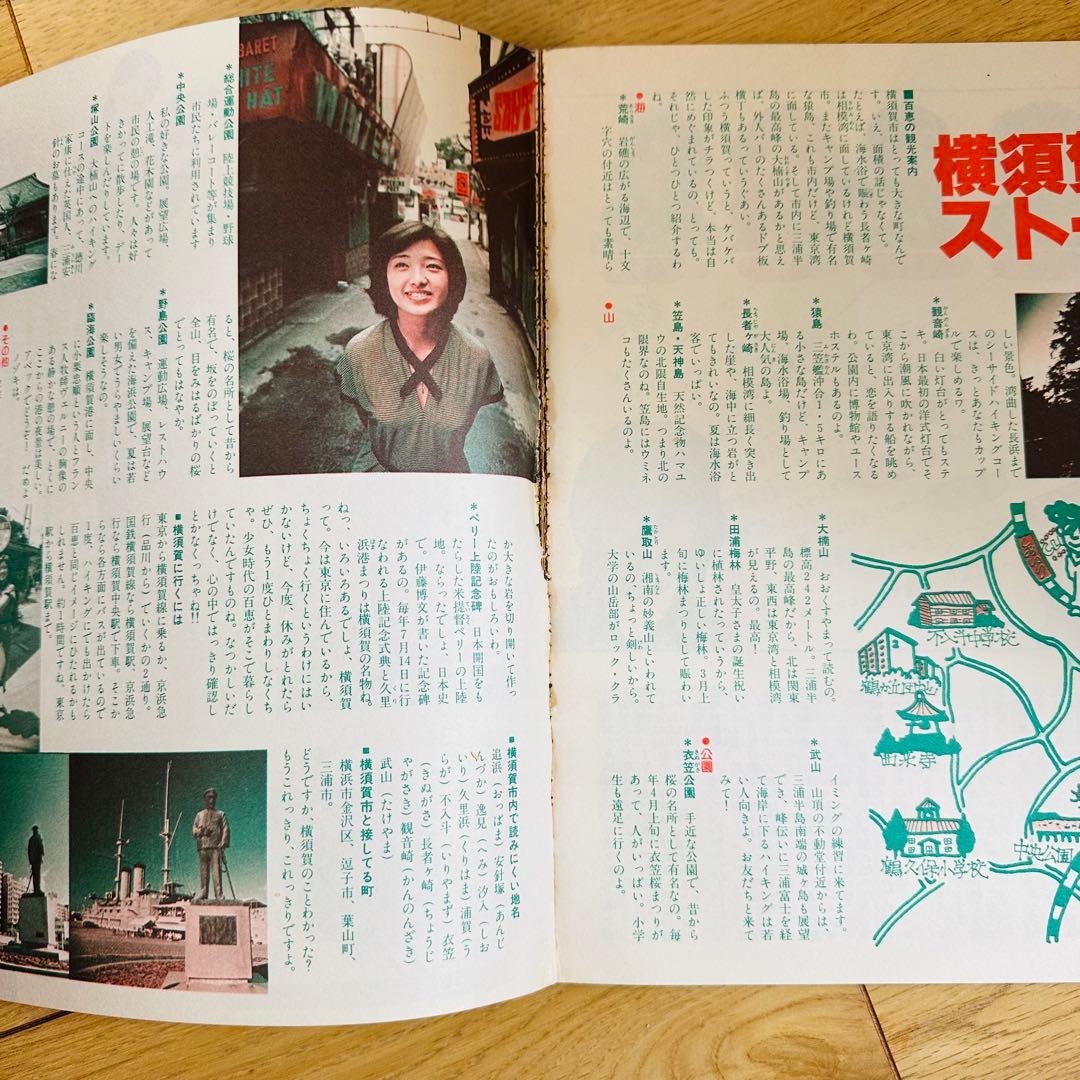 横須賀
スト
■百恵の観光案内
横須賀市はとっても大きな町なんで
す。いえ、面積の話じゃなくて。
たとえば、海水浴で賑わう長者ヶ崎
は相模湾に面しているけれど横須賀
市。またキャンプ場や釣り場で有名
な猿島、これも市内だけど、東京湾
に面している。そして市内に三浦半
島の最高峰の大楠山があるかと思え
ば、外人バーのたくさんあるドブ板
横丁もあるっていうぐあい。
ふつう横須賀っていうと、ケバケバ
した印象がチラつくけど、本当は自
然にめぐまれているの、とっても。
それじゃ、ひとつひとつ紹介するわ
ね。
●海
＊荒崎　岩礁の広がる海辺で、十文
字穴の付近はとっても素晴ら
しい景色。湾曲した長浜まで
のシーサイドハイキングコー
スは、きっとあなたもカップ
ルで楽しめるワ。
＊観音崎　白い灯台がとってもステ
キ。日本最初の洋式灯台でそ
こから潮風に吹かれながら、
東京湾に出入りする船を眺め
ていると、恋を語りたくなる
わ。公園内に博物館やユース
ホステルもあるのよ。
＊猿島　三笠艦沖合1・5キロにあ
る小さな島だけど、キャンプ
場、海水浴場、釣り場として
大人気の島よ。
＊長者ヶ崎　相模湾に細長く突き出
した崖や、海中に立つ岩がと
てもきれいなの。夏は海水浴
客でいっぱい。
＊笠島・天神島　天然記念物ハマユ
ウの北限自生地。つまり北の
限界なのね。笠島にはウミネ
コもたくさんいるのよ。
●山
＊大楠山　おおくすやまって読むの。
標高242メートル。三浦半
島の最高峰だから、北は関東
平野、東西は東京湾と相模湾
が見えるの。最高！
＊田浦梅林　皇太子さまの誕生祝い
に植林されたっていうから、
ゆいしょ正しい梅林。3月上
旬に梅林まつりとして賑わい
ます。
＊鷹取山　湘南の妙義山といわれて
いるの、ちょっと剣しいから。
大学の山岳部がロック・クラ
イミングの練習に来てます。
＊武山　山頂の不動堂付近からは、
三浦半島南端の城ヶ島も展望
でき、峰伝いに三浦富士を経
て海岸に下るハイキングは若
い人向きよ。お友だちと来て
みて！
●公園
＊衣笠公園　手近な公園で、昔から
桜の名所として有名なの。毎
年4月上旬に衣笠桜まつりが
あって、人がいっぱい。小学
生も遠足に行くのよ。
不入斗中学校
鶴が丘団地
曲来寺
鶴久保小学校
中央公園
BARET
WHITE
HAT
＊総合運動公園　陸上競技場・野球
場・バレーコート等が集まり
市民たちに利用されています
＊中央公園
私の好きな公園。展望広場、
人工滝、花木園などがあって
市民の憩の場です。人々は好
きかってに散歩したり、デー
トを楽しんだりしています。
＊塚山公園　大楠山へのハイキング
コースの途中にあって、徳川
家康に仕えた英国人、三浦安
針のお墓もあります。春にな
ると、桜の名所として昔から
有名で、坂をのぼっていくと
全山、目をみはるばかりの桜
でとってもはなやか。
＊野島公園　運動広場、レストハウ
ス、キャンプ場、展望台など
を備えた海浜公園で、夏は若
い男女でうらやましいくらい
楽しそうなの。
＊臨海公園　横須賀港に面し、中央
に小栗忠順という人とフラン
ス人技師ヴェルニーの胸像の
ある静かな憩の場で、とくに
ここからの港の夜景は美しい。
●その他
か大きな岩を切り開いて作っ
たのがおもしろいわ。
＊ペリー上陸記念碑　日本開国をも
たらした米提督ペリーの上陸
地でーす。いったでしょ、日本史
で。伊藤博文が書いた記念碑
があるの。毎年7月14日に行
なわれる上陸記念式典と久里
浜港まつりは横須賀の名物ね。
ねっ、いろいろあるでしょ、横須賀
って。今は東京に住んでいるから、
ちょくちょく行くというわけにはい
かないけど、今度、休みがとれたら
ぜひ、もう1度ひとまわりしなくち
ゃ。少女時代の百恵がそこで暮らし
ていたんですものね。なつかしいだ
けでなくて、心の中ではっきり確認し
とかなくっちゃね!!
■横須賀に行くには
東京から横須賀に来るか、京浜急
行（品川から）でいくかの2通り。
国鉄横須賀線なら横須賀駅、京浜急
行なら横須賀中央駅で下車。そこか
らなら各方面にバスが出ているので
1度、ハイキングにでも出かけたら
百恵と同じイメージにひたれるかも
しれません。約1時間ですね、東京
駅から横須賀駅まで。
■横須賀市内で読みにくい地名
追浜（おっぱま）安針塚（あんじ
んづか）逸見（へみ）汐入（しお
いり）久里浜（くりはま）浦賀（う
らが）不入斗（いりやまず）衣笠
（きぬがさ）長者ヶ崎（ちょうじ
ゃがさき）観音崎（かんのんざき）
武山（たけやま）
■横須賀市と接してる町
横浜市金沢区、逗子市、葉山町、
三浦市。
どうですか、横須賀のことわかった？
もうこれっきり、これっきりですよ。